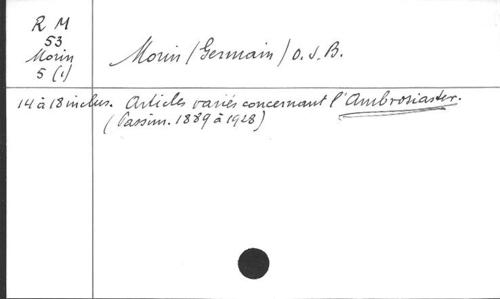 R M
53
Morin
5 (1)
Morin (Germain) O.S.B.
14 à 18 inclus. Articles variés concernant l'Ambrosiaster.
(Passim. 1889 à 1928)